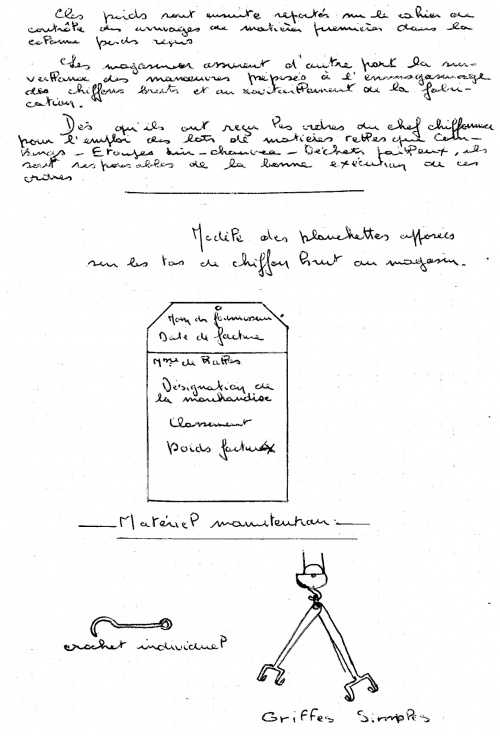 Ces poids sont ensuite reportés sur le cahier de
contrôle des arrivages de matières premières dans la
colonne poids reçus
Les magasiniers assurent d'autre part la sur-
veillance des manœuvres préposés à l'emmagasinage
des chiffons bruts et au ravitaillement de la fabri-
cation.
Dès qu'ils ont reçu les ordres du chef chiffonnier
pour l'emploi des lots de matières telles que
Bings - Etoupes lin - chanvre - Déchets , ils
sont responsables de la bonne exécution de ces
ordres
Modèle des planchettes apposées
sur les tas de chiffon brut au magasin.
Nom du fournisseur
Date de facture
Nbre de Balles
Désignation de
la marchandise
Classement
Poids facturé
Matériel manutention.
crochet individuel
Griffes Simples